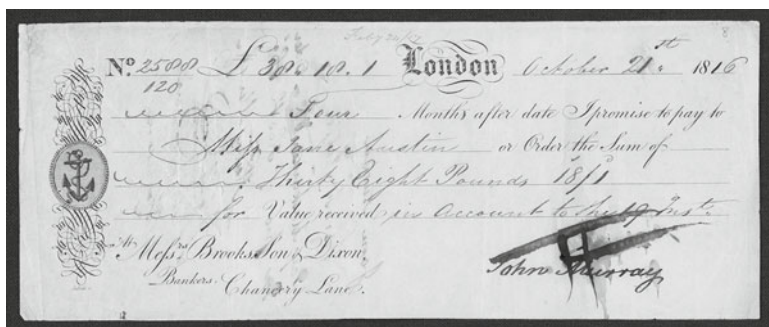 Feby 24/7
No. 2588 £38.18.1 London October 21st 1816
120
Four Months after date I promise to pay to
Miss Jane Austin or Order the Sum of
Thirty Eight Pounds 18/1
for Value received in Account to the 19 Inst.
At Messrs. Brooks, Son & Dixon,
Bankers, Chancery Lane.
John Murray